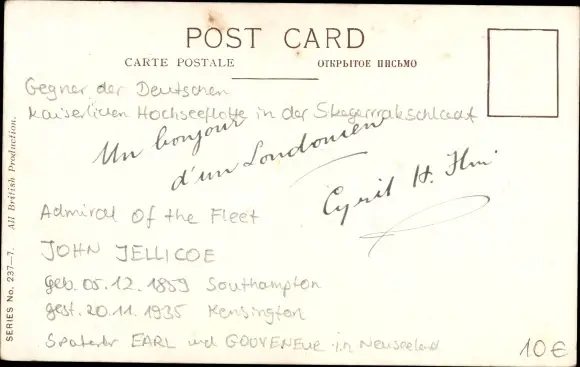 POST CARD
CARTE POSTALE
ОТКРЫТОЕ ПИСЬМО
Gegner der Deutschen
Kaiserlichen Hochseeflotte in der Skagerrakschlacht
Un bonjour
d'un Londonien
Cyril H.
Admiral Of the Fleet
JOHN JELLICOE
geb. 05.12.1859 Southampton
gest. 20.11.1935 Kensington
Später EARL und GOUVENEUR in Neuseeland
10€
SERIES No. 237-7. All British Production.